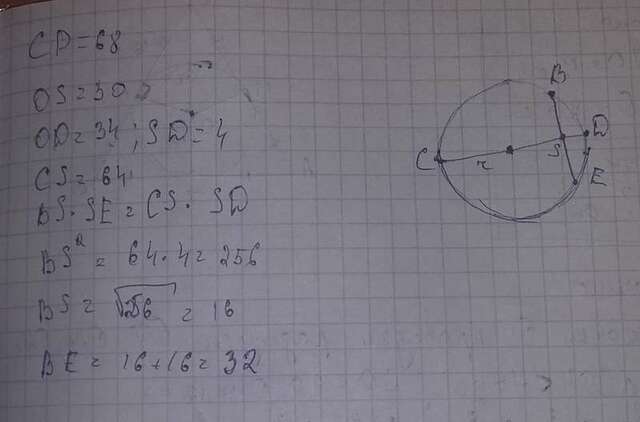 CD=68
OS=30
OD=34; SD=4
CS=64
BS·SE=CS·SD
BS²=64·4=256
BS=√256=16
BE=16+16=32
B
D
S
C
r
E